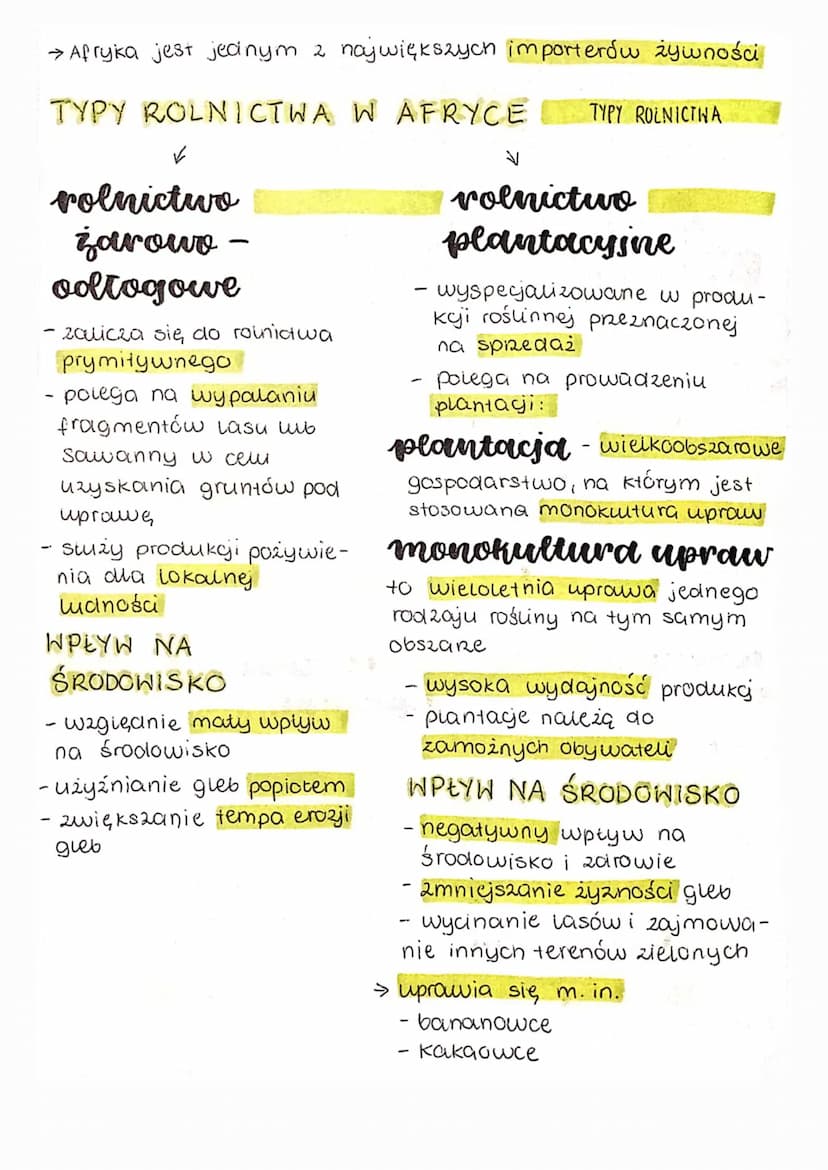 → Afryka jest jednym z największych importerów żywności
TYPY ROLNICTWA W AFRYCE TYPY ROLNICTWA
rolnictwo
żarowo -
odłogowe
- zalicza się do rolnictwa
prymitywnego
- polega na wypalaniu
fragmentów lasu lub
sawanny w celu
uzyskania gruntów pod
uprawę
- służy produkcji pożywie-
nia dla lokalnej
ludności
WPŁYW NA
ŚRODOWISKO
- względnie mały wpływ
na środowisko
- użyźnianie gleb popiołem
- zwiększanie tempa erozji
gleb
rolnictwo
plantacyjne
- wyspecjalizowane w produ-
kcji roślinnej przeznaczonej
na sprzedaż
- polega na prowadzeniu
plantacji:
plantacja - wielkoobszarowe
gospodarstwo, na którym jest
stosowana monokultura upraw
monokultura upraw
to wieloletnia uprawa jednego
rodzaju rośliny na tym samym
obszarze
- wysoka wydajność produkcj
- plantacje należą do
zamożnych obywateli
WPŁYW NA ŚRODOWISKO
- negatywny wpływ na
środowisko i zdrowie
- zmniejszanie żyzności gleb
- wycinanie lasów i zajmowa-
nie innych terenów zielonych
→ uprawia się m.in.
- bananowce
- kakaowce